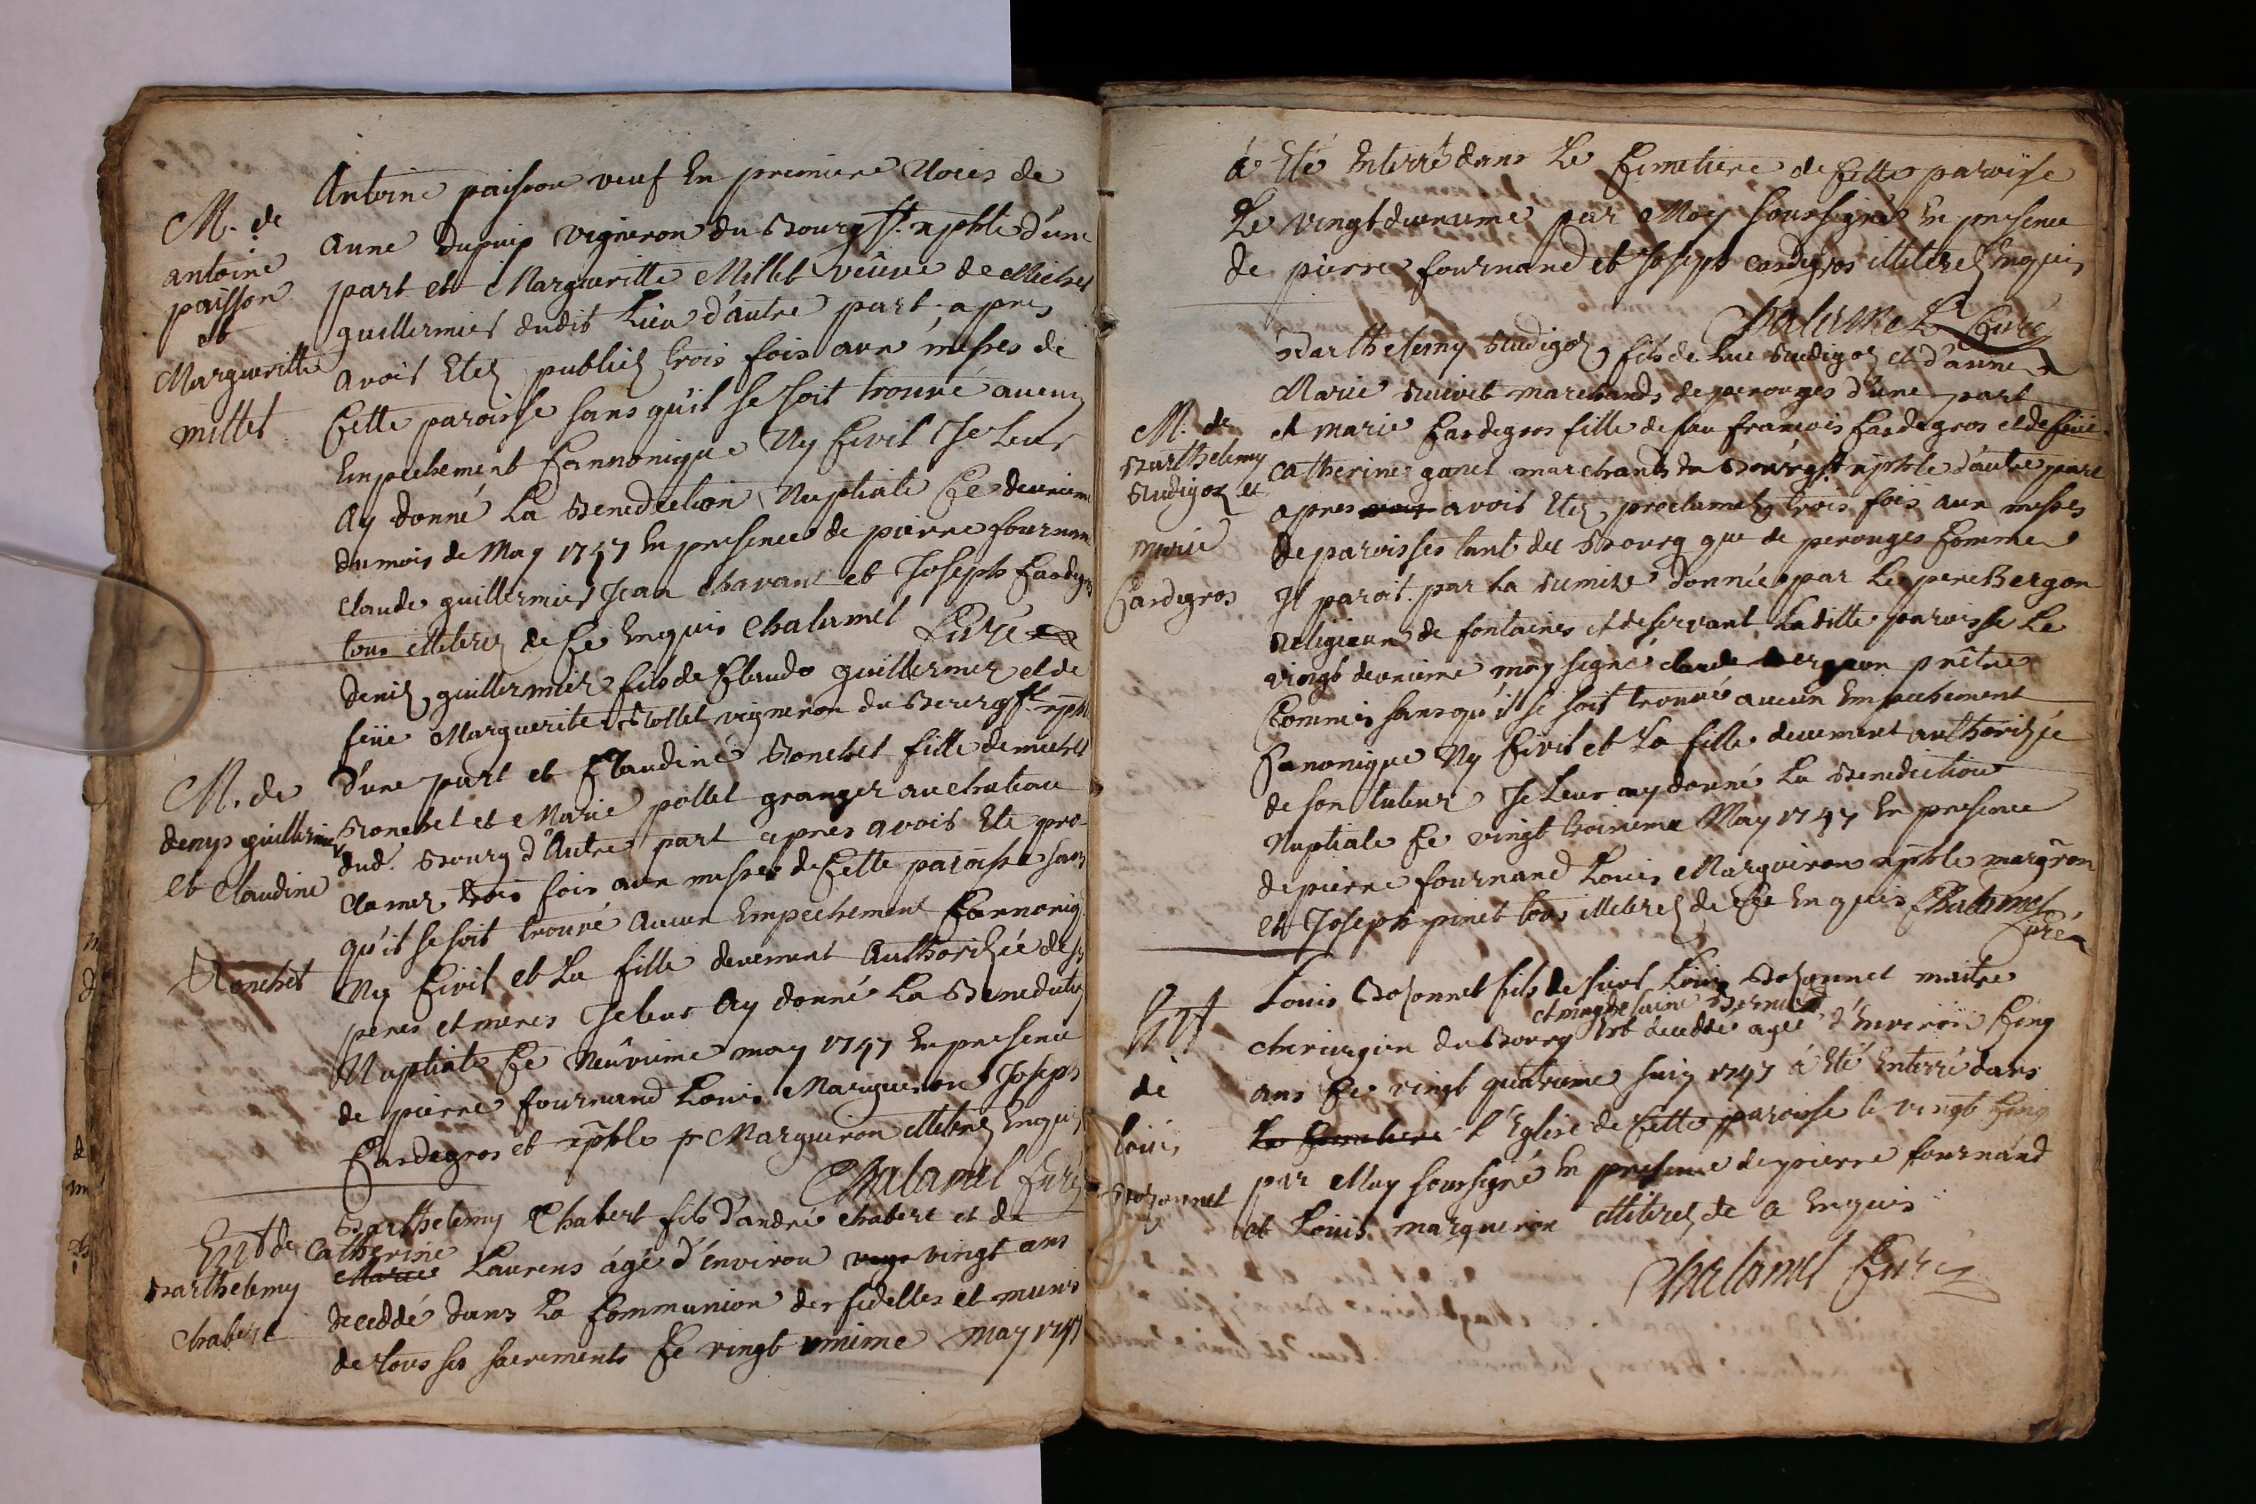 M. de
antoine
paisson
et
Margueritte
millet
Antoine paisson veuf En premiere Noces de
anne dupuis vigneron du Bourg St. xphle d'une
part et Margueritte Millet veüve de Michel
guillermier dudit Lieu d'autre part apres
avoir Etez publiez trois fois aux messes de
Cette paroisse sans qu'il se soit trouvé aucun
Empechement Cannonique Ny Civil Je Leur
Ay donné La Benediction Nuptiale Ce deuxieme
du mois de May 1747 En presence de pierre fournan
claude guillermier Jean chavant et Joseph Cardegros
tous illiterez de Ce Enquis Chalamel Curé
M. de
denys guillermier
et Claudine
Ronchet
deniz guillermier fils de Claude guillermier et de
feüe Marguerite Rollet vigneron du Bourg St. xphle
d'une part et Claudine Ronchet fille de michel
Ronchet et Marie pollet granger au chateau
dud. Bourg d'Autre part apres avoir Ete pro-
clamez trois fois aux messes de Cette paroisse sans
qu'il se soit trouvé Aucun Empechement Cannoniq
Ny Civil et La fille deuement Authorizée de ses
peres et meres Je leur Ay donné La Benediction
Nuptiale Ce Neûvieme may 1747 En presence
de pierre fournand Louis Margueron Joseph
Cardegros et xphle Margueron illiterez Enquis
Chalamel Curé
Ent de
Barthelemy
Chabert
Barthelemy Chabert fils d'andré chabert et de
Catherine
Marie Laurens âgé d'environ vingt ans
decedé dans La Communion des fidelles et munis
de tous ses sacrements Ce vingt unieme May 1747
à Eté Enterré dans Le Cimetiere de Cette paroisse
Le vingt deuxieme par Moy soussigné En presence
de pierre fournand et Joseph Cardegros illiterez Enquis
Chalamel Curé
M. de
Barthelemy
Rudigoz et
marie
Cardegros
Barthelemy Rudigoz fils de Luc Rudigoz et d'anne
Marie marchands de perouges d'une part
et marie Cardegros fille de feu francois Cardegros et de feüe
Catherine ganet marchands du Bourg St xphle d'autre part
apres avoir Etez proclamez trois fois aux messes
de paroisses tant du Bourg que de perouges Comme
Il paroit par La Remise donnée par Le pere Bergon
Religieux de fontaines et desservant La ditte paroisse Le
vingt deuxieme may signé claude prêtre
Commis sans qu'il se soit trouvé aucun Empechement
Canonique Ny Civil et La fille deuement authorizée
de son tuteur Je Leur ay donné La Benediction
Nuptiale Ce vingt troisieme May 1747 En presence
de pierre fournand Louis Margueron xphle margron
et Joseph pinet tous illiterez de Ce Enquis Chalamel
Curé
Ent
de
Louis
Bozonnet
Louis Bozonnet fils de sieur Louis Bozonnet maitre
et magdelaine Bernard
chirurgien du Bourg Est decedé agé d'environ Cinq
ans Ce vingt quatrieme Juin 1747 à Eté Enterré dans
Le Cimetiere l'Eglise de Cette paroisse le vingt Cinq
par Moy soussigné En presence de pierre fournand
et Louis margueron illiterez de Ce Enquis
Chalamel Curé